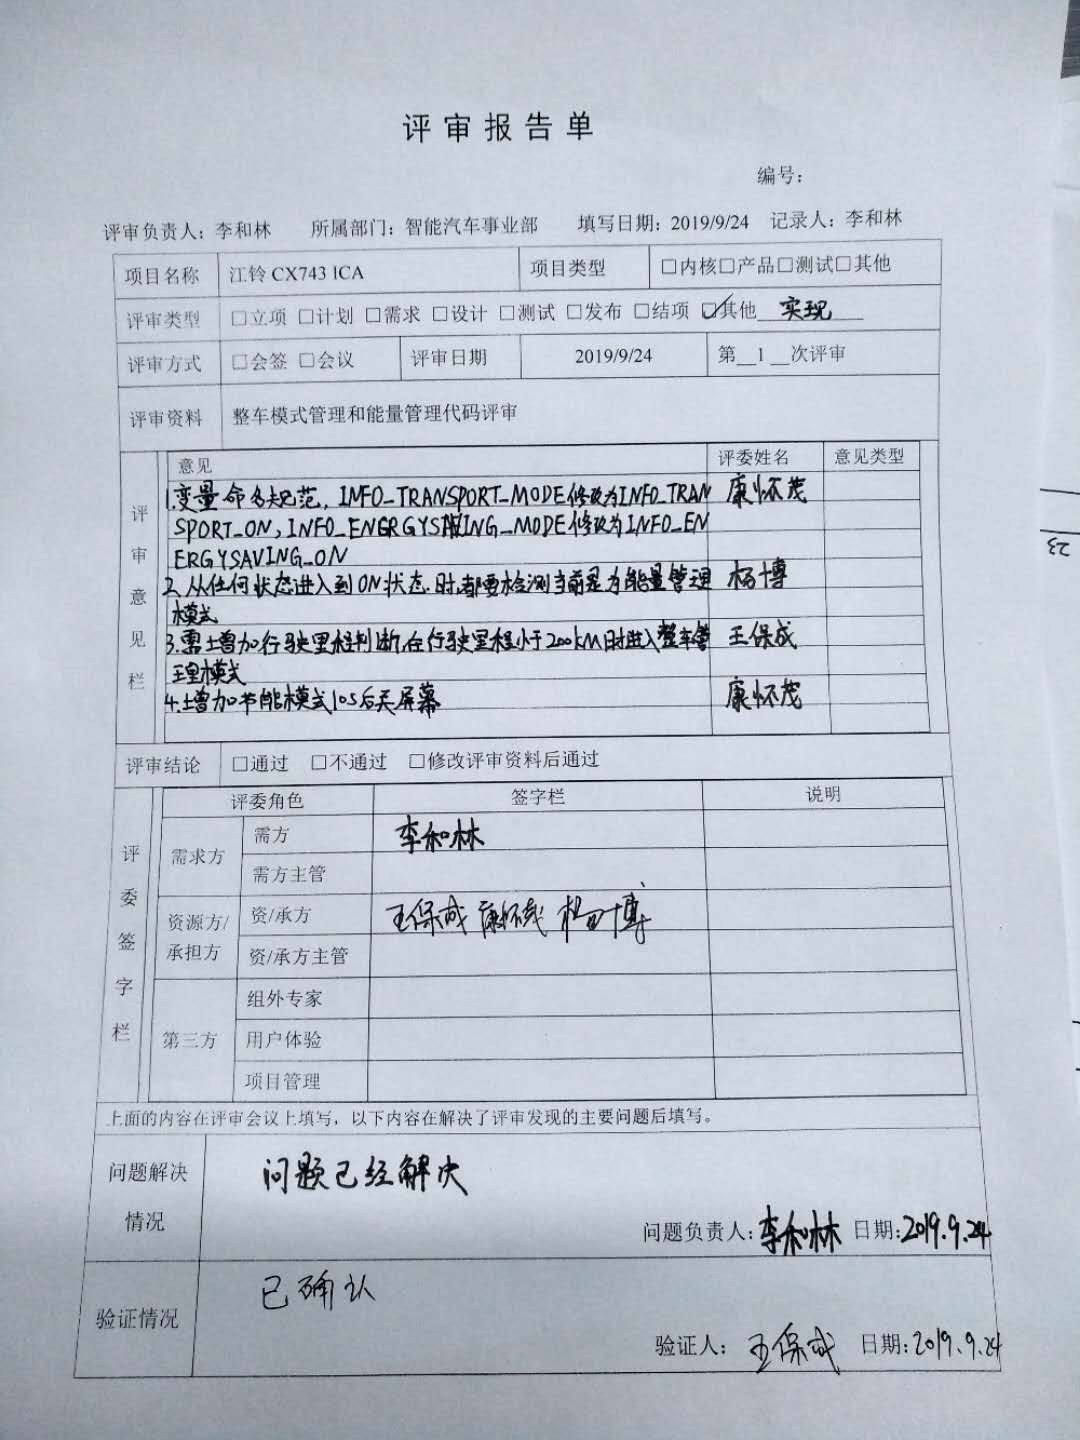 评审报告单
编号：
评审负责人：李和林 所属部门：智能汽车事业部 填写日期：2019/9/24 记录人：李和林
项目名称 江铃 CX743 ICA 项目类型 □内核□产品□测试□其他
评审类型 □立项 □计划 □需求 □设计 □测试 □发布 □结项 ☑其他 实现
评审方式 □会签 □会议 评审日期 2019/9/24 第 1 次评审
评审资料 整车模式管理和能量管理代码评审
评审意见栏
意见 评委姓名 意见类型
1.变量命名规范，INFO_TRANSPORT_MODE修改为INFO_TRAN 康怀茂
SPORT_ON，INFO_ENERGYSAVING_MODE修改为INFO_EN
ERGYSAVING_ON
2.从任何状态进入到ON状态时,都要检测当前是为能量管理 杨博
模式
3.需增加行驶里程判断,在行驶里程小于200kM时进入整车管 王保成
理模式
4.增加节能模式10S后关屏幕 康怀茂
评审结论 □通过 □不通过 □修改评审资料后通过
评委签字栏
评委角色 签字栏 说明
需求方 需方 李和林
需方主管
资源方/承担方 资/承方 王保成 康怀茂 杨博
资/承方主管
第三方 组外专家
用户体验
项目管理
上面的内容在评审会议上填写，以下内容在解决了评审发现的主要问题后填写。
问题解决情况 问题已经解决
问题负责人：李和林 日期：2019.9.24
验证情况 已确认
验证人：王保成 日期：2019.9.24
23